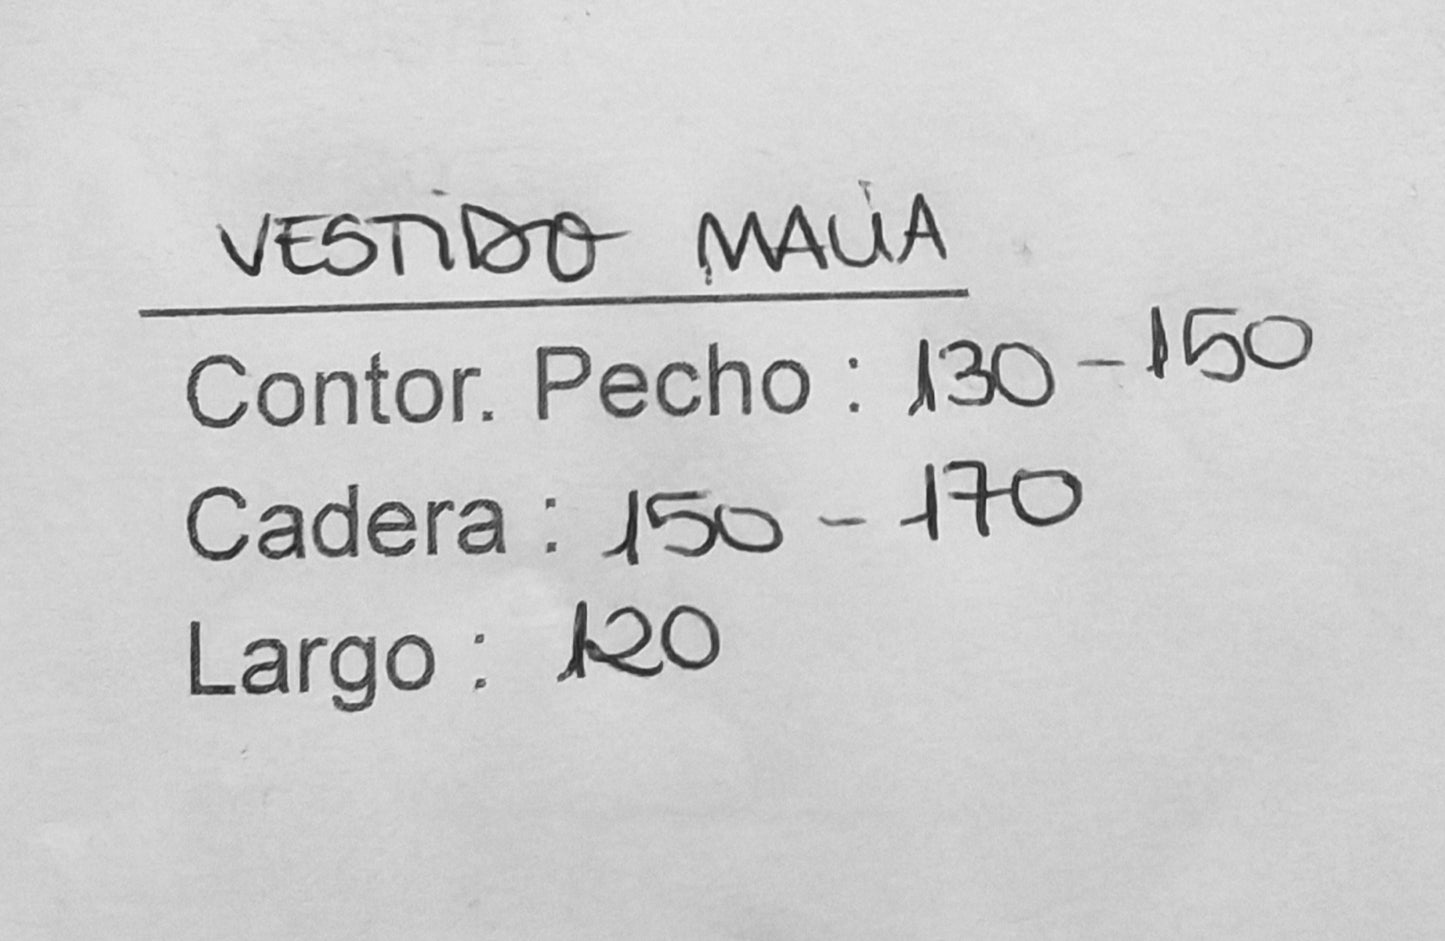 VESTiDO MALiA
Contor. Pecho : 130 - 150
Cadera : 150 - 170
Largo : 120